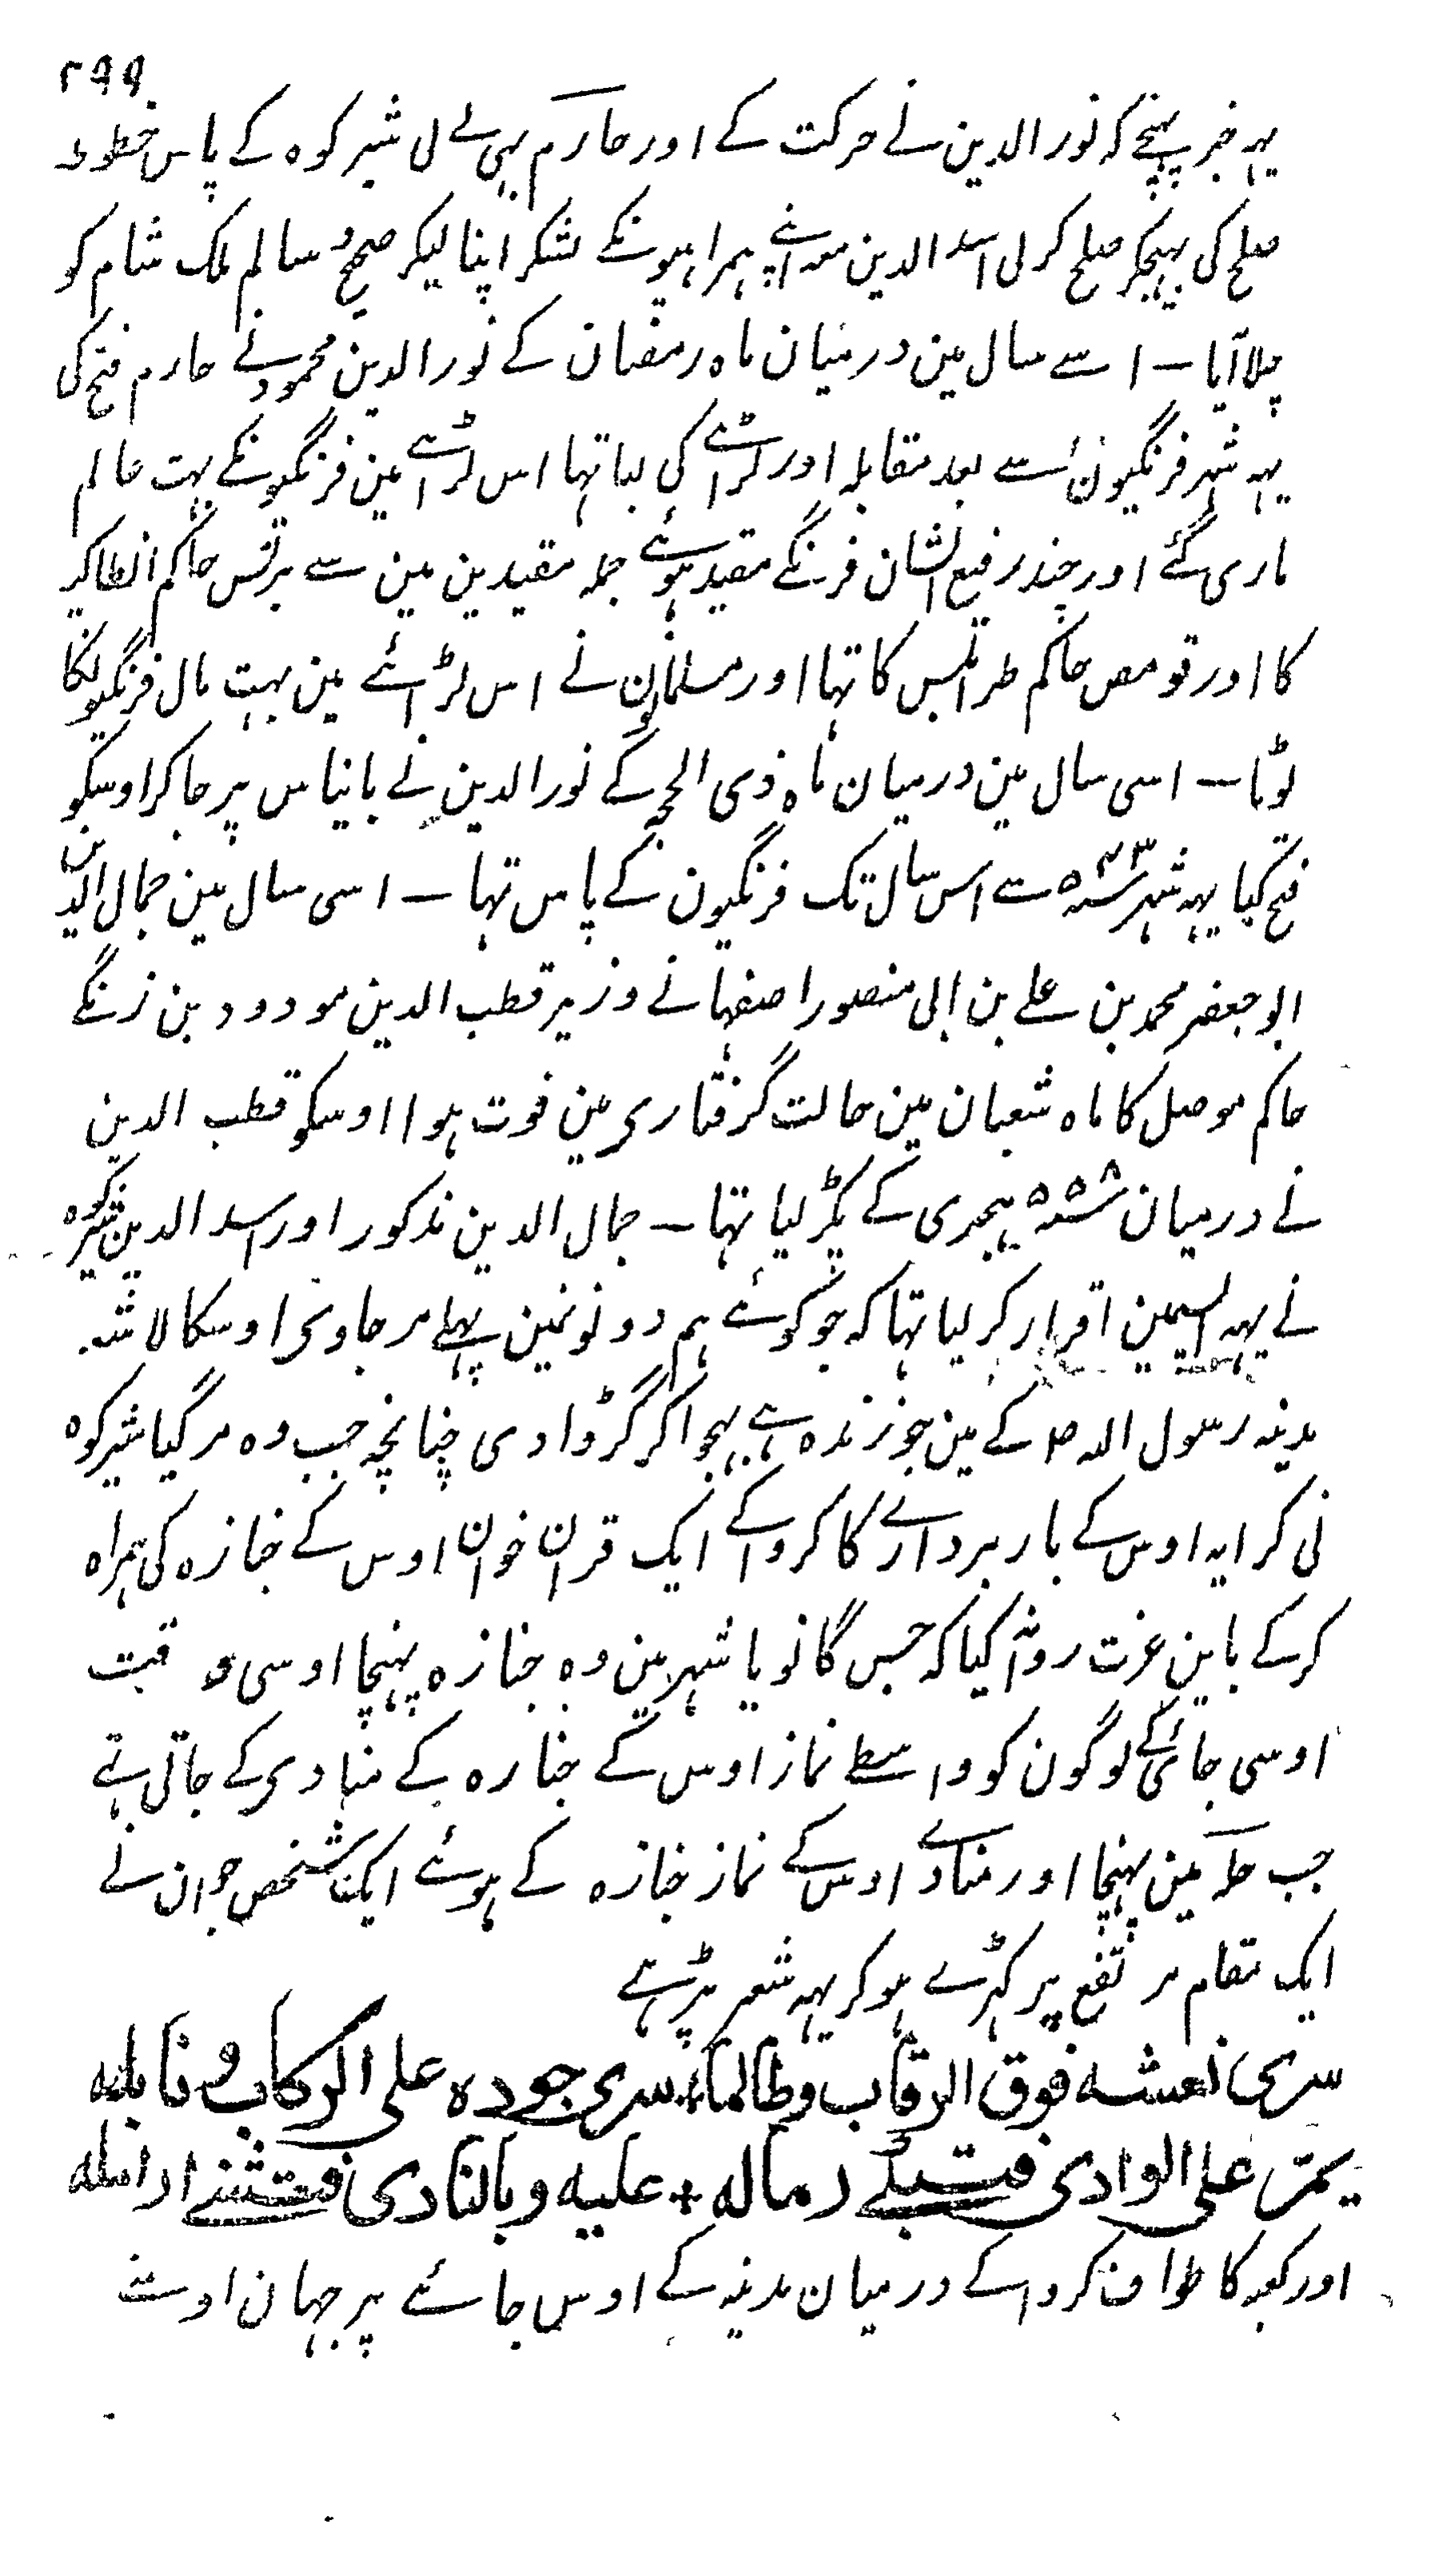 ۲۹۹
یہہ خبر پہنچے کہ نور الدین نے حرکت کے اور حارم بہی لے لی شیرکوہ کے پاس خطوط
صلح کی بہیجکر صلح کرلی اسد الدین معہ اپنے ہمراہیونکے لشکر اپنا لیکر صحیح و سالم ملک شام کو
چلا آیا — اسے سال مین درمیان ماہ رمضان کے نور الدین محمود نے حارم فتح کی
یہہ شہر فرنگیون سے بعد مقابلہ اور لڑائے کی لیا تہا اس لڑائے مین فرنگیونکے بہت عالم
ماری گئے اور چند رفیع الشان فرنگے مقید ہوئے جملہ مقیدین مین سے برنس حاکم انطاکیہ
کا اور قومص حاکم طرابلس کا تہا اور مسلمانون نے اس لڑائے مین بہت مال فرنگیونکا
لوٹا — اسی سال مین درمیان ماہ ذی الحجہ کے نور الدین نے بانیاس پر جا کر اوسکو
فتح کیا یہہ شہر سنہ ۵۴۳ سے اس سال تک فرنگیون کے پاس تہا — اسی سال مین جمال الدین
ابو جعفر محمد بن علے بن ابی منصور اصفہانے وزیر قطب الدین مودود بن زنگے
حاکم موصل کا ماہ شعبان مین حالت گرفتاری مین فوت ہوا اوسکو قطب الدین
نے درمیان سنہ ۵۵۸ ہیجری کے پکڑ لیا تہا — جمال الدین مذکور اور اسد الدین شیرکوہ
نے یہہ اپسمین اقرار کر لیا تہا کہ جو کوئے ہم دونونمین پہلے مر جاوی اوسکا لاشہ
مدینہ رسول اللہ صہ کے مین جو زندہ ہے بہجوا کر گڑوادی چنانچہ جب وہ مر گیا شیرکوہ
نی کرایہ اوس کے بار بردارے کا کرواکے ایک قران خوان اوس کے جنازہ کی ہمراہ
کر کے باین عزت روانہ کیا کہ جس گانو یا شہر مین وہ جنازہ پہنچا اوسی وقت
اوسی جائے کے لوگون کو واسطے نماز اوس کے جنازہ کے منادی کے جاتی ہتے
جب حلہ مین پہنچا اور منادے اوس کے نماز جنازہ کے ہوئے ایک شخص جوان نے
ایک مقام مرتفع پر کہڑے ہو کر یہہ شعر پڑہے
سری نعشہ فوق الرقاب وطالما + سری جودہ علی الرکاب و نائلہ
یمرّ علی الوادی فتبکے رمالہ + علیہ و بالنادی فتثنے اراملہ
اور کعبہ کا طواف کرواکے درمیان مدینہ کے اوس جائے پر جہان اوسنے